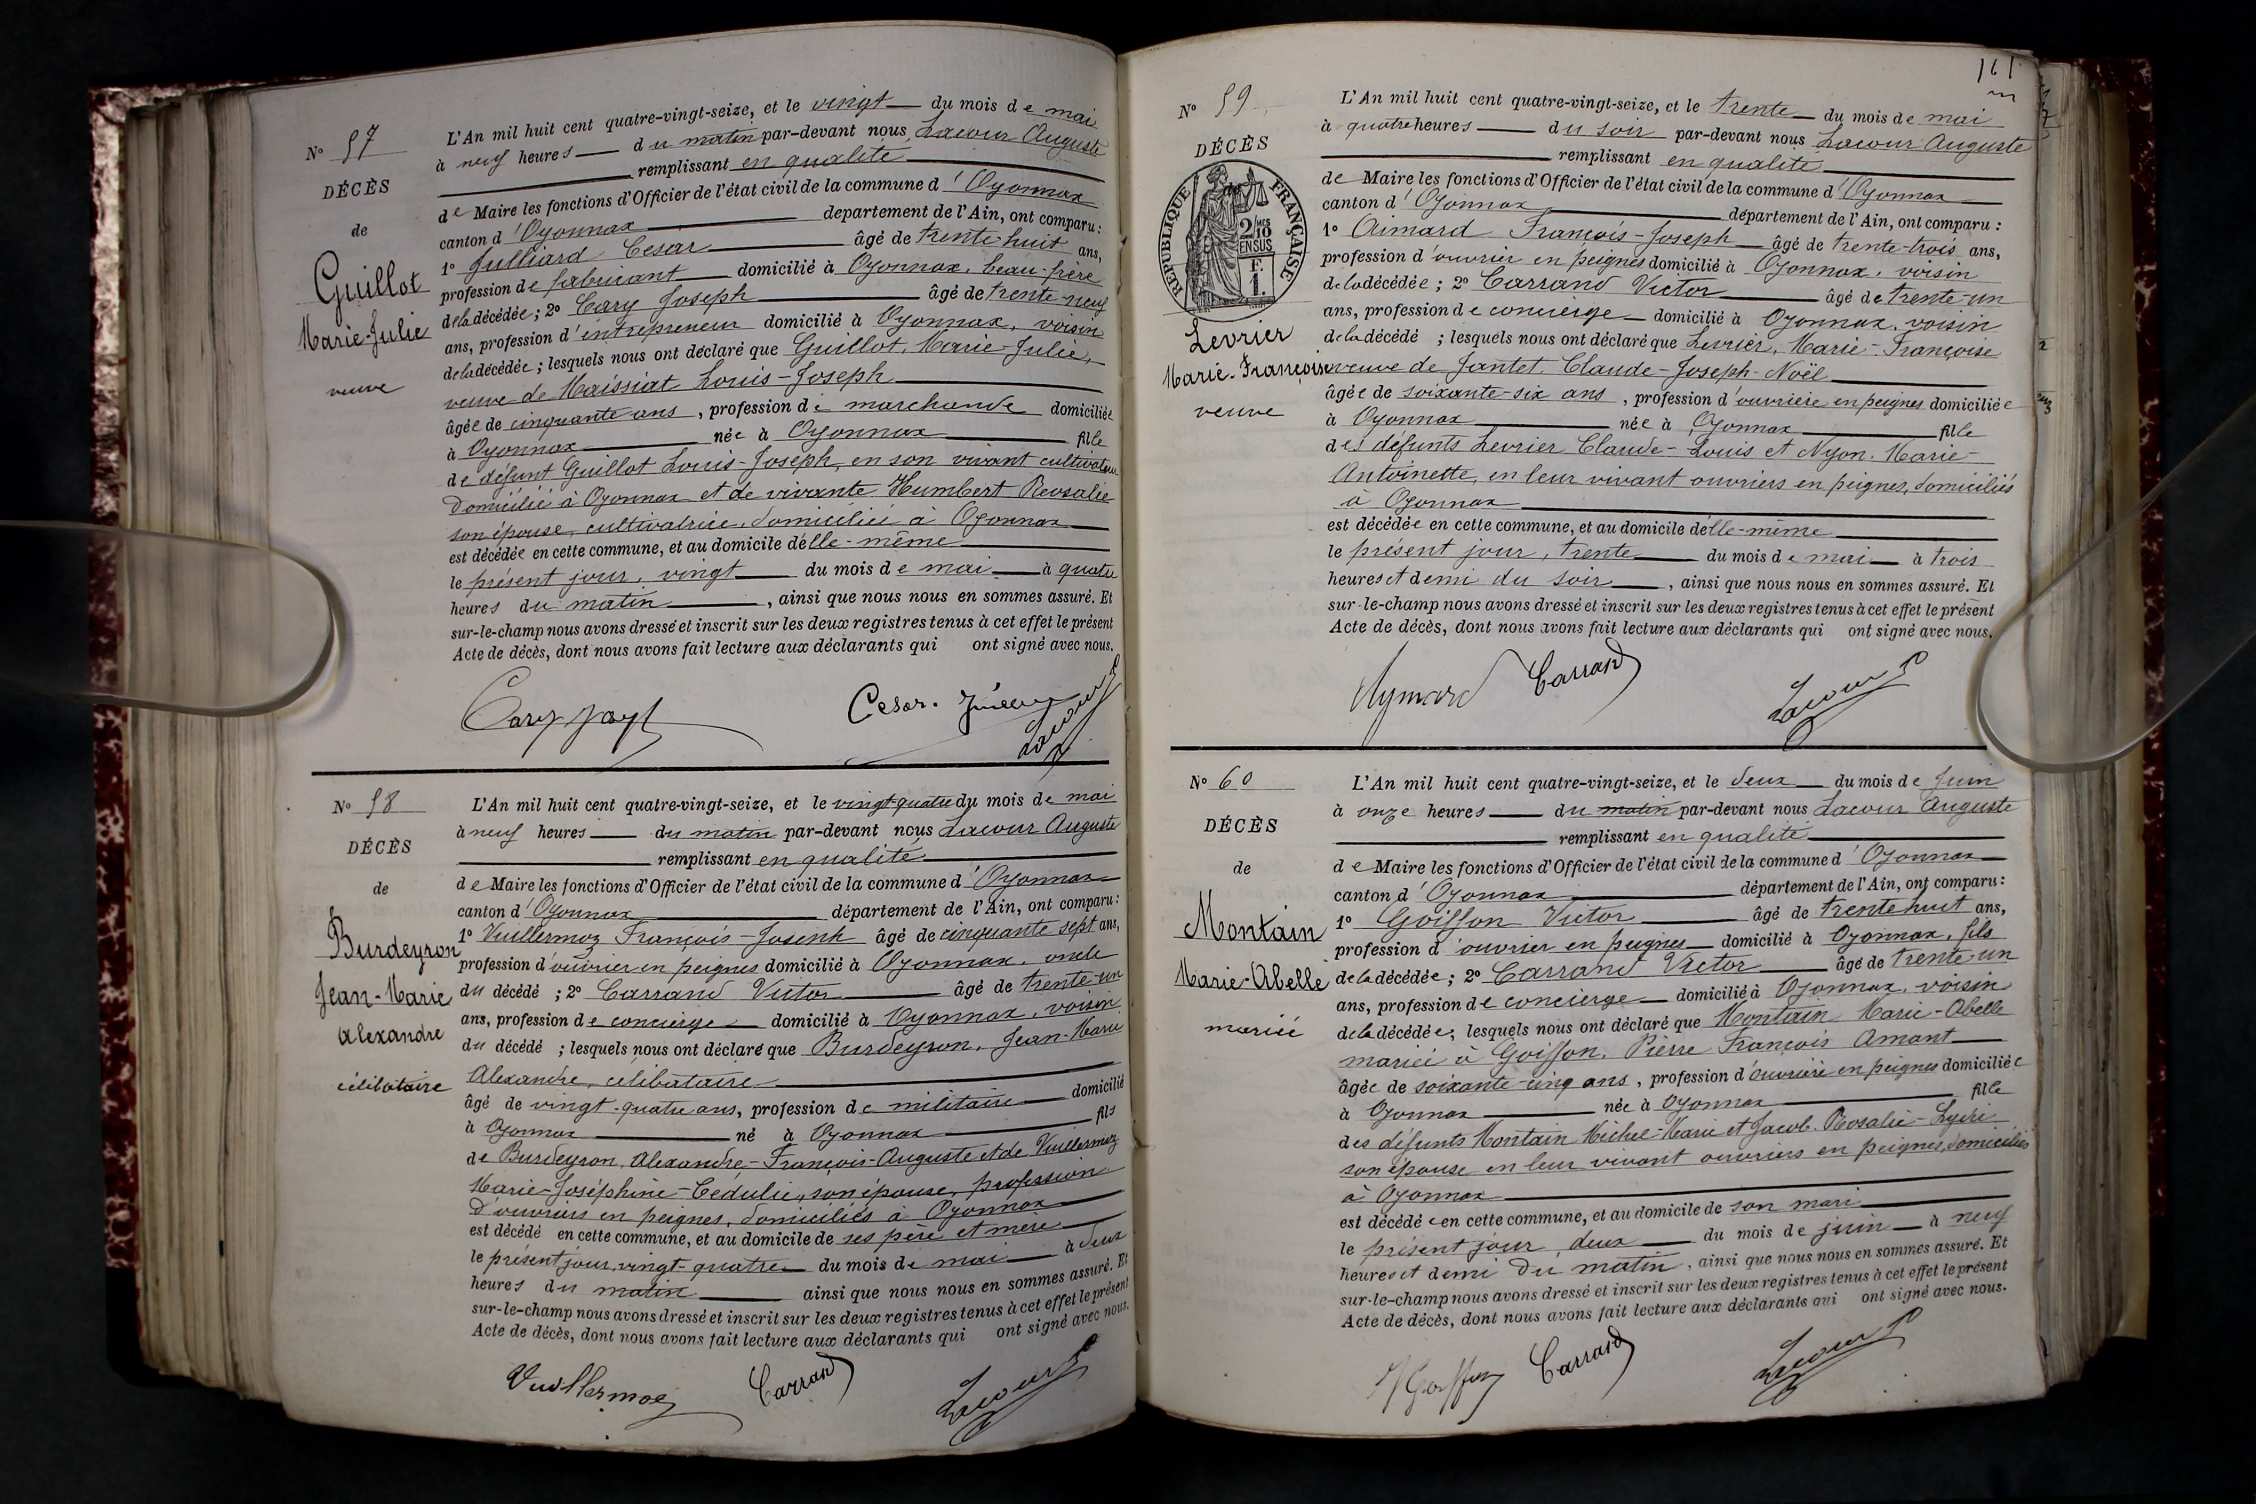 N° 57
DÉCÈS
de
Guillot
Marie-Julie
veuve
L'An mil huit cent quatre-vingt-seize, et le vingt du mois de mai
à neuf heures du matin par-devant nous Lacour Auguste
remplissant en qualité
de Maire les fonctions d'Officier de l'état civil de la commune d'Oyonnax
canton d'Oyonnax département de l'Ain, ont comparu :
1° Julliard César âgé de trente huit ans,
profession de fabricant domicilié à Oyonnax, beau-frère
de la décédée ; 2° Cary Joseph âgé de trente-neuf
ans, profession d'entrepreneur domicilié à Oyonnax, voisin
de la décédée ; lesquels nous ont déclaré que Guillot, Marie-Julie,
veuve de Maissiat Louis-Joseph
âgée de cinquante ans, profession de marchande domiciliée
à Oyonnax née à Oyonnax fille
de défunt Guillot Louis-Joseph, en son vivant cultivateur
domicilié à Oyonnax et de vivante Humbert Rosalie
son épouse, cultivatrice, domiciliée à Oyonnax
est décédée en cette commune, et au domicile d'elle-même
le présent jour, vingt du mois de mai à quatre
heures du matin, ainsi que nous nous en sommes assuré. Et
sur-le-champ nous avons dressé et inscrit sur les deux registres tenus à cet effet le présent
Acte de décès, dont nous avons fait lecture aux déclarants qui ont signé avec nous.
Cary César Lacour
N° 58
DÉCÈS
de
Burdeyron
Jean-Marie
Alexandre
célibataire
L'An mil huit cent quatre-vingt-seize, et le vingt-quatre du mois de mai
à neuf heures du matin par-devant nous Lacour Auguste
remplissant en qualité
de Maire les fonctions d'Officier de l'état civil de la commune d'Oyonnax
canton d'Oyonnax département de l'Ain, ont comparu :
1° Vuillermoz François-Joseph âgé de cinquante sept ans,
profession d'ouvrier en peignes domicilié à Oyonnax, oncle
du décédé ; 2° Carrand Victor âgé de trente-un
ans, profession de concierge domicilié à Oyonnax, voisin
du décédé ; lesquels nous ont déclaré que Burdeyron, Jean-Marie
Alexandre, célibataire
âgé de vingt-quatre ans, profession de militaire domicilié
à Oyonnax né à Oyonnax fils
de Burdeyron, Alexandre-François-Auguste et de Vuillermoz
Marie-Joséphine-Cédulie, son épouse, profession
d'ouvriers en peignes, domiciliés à Oyonnax
est décédé en cette commune, et au domicile de ses père et mère
le présent jour, vingt-quatre du mois de mai à deux
heures du matin ainsi que nous nous en sommes assuré. Et
sur-le-champ nous avons dressé et inscrit sur les deux registres tenus à cet effet le présent
Acte de décès, dont nous avons fait lecture aux déclarants qui ont signé avec nous.
Vuillermoz Carrand Lacour
161
N° 59
DÉCÈS
RÉPUBLIQUE FRANÇAISE
2/10 MES
EN SUS
F.
1.
Levrier
Marie-Françoise
veuve
L'An mil huit cent quatre-vingt-seize, et le trente du mois de mai
à quatre heures du soir par-devant nous Lacour Auguste
remplissant en qualité
de Maire les fonctions d'Officier de l'état civil de la commune d'Oyonnax
canton d'Oyonnax département de l'Ain, ont comparu :
1° Aimard François-Joseph âgé de trente-trois ans,
profession d'ouvrier en peignes domicilié à Oyonnax, voisin
de la décédée ; 2° Carrand Victor âgé de trente-un
ans, profession de concierge domicilié à Oyonnax, voisin
de la décédé ; lesquels nous ont déclaré que Levrier, Marie-Françoise
veuve de Jantet Claude-Joseph-Noël
âgée de soixante-six ans, profession d'ouvrière en peignes domiciliée
à Oyonnax née à Oyonnax fille
des défunts Levrier Claude-Louis et Nyon Marie-
Antoinette, en leur vivant ouvriers en peignes, domiciliés
à Oyonnax
est décédée en cette commune, et au domicile d'elle-même
le présent jour, trente du mois de mai à trois
heures et demi du soir, ainsi que nous nous en sommes assuré. Et
sur-le-champ nous avons dressé et inscrit sur les deux registres tenus à cet effet le présent
Acte de décès, dont nous avons fait lecture aux déclarants qui ont signé avec nous.
Aymard Carrand Lacour
N° 60
DÉCÈS
de
Montain
Marie-Abelle
mariée
L'An mil huit cent quatre-vingt-seize, et le deux du mois de juin
à onze heures du matin par-devant nous Lacour Auguste
remplissant en qualité
de Maire les fonctions d'Officier de l'état civil de la commune d'Oyonnax
canton d'Oyonnax département de l'Ain, ont comparu :
1° Goiffon Victor âgé de trente huit ans,
profession d'ouvrier en peignes domicilié à Oyonnax, fils
de la décédée ; 2° Carrand Victor âgé de trente-un
ans, profession de concierge domicilié à Oyonnax, voisin
de la décédée ; lesquels nous ont déclaré que Montain Marie-Abelle
mariée à Goiffon, Pierre François Amant
âgée de soixante-cinq ans, profession d'ouvrière en peignes domiciliée
à Oyonnax née à Oyonnax fille
des défunts Montain Michel-Marie et Jacob Rosalie-
son épouse en leur vivant ouvriers en peignes, domiciliés
à Oyonnax
est décédée en cette commune, et au domicile de son mari
le présent jour, deux du mois de juin à neuf
heures et demi du matin, ainsi que nous nous en sommes assuré. Et
sur-le-champ nous avons dressé et inscrit sur les deux registres tenus à cet effet le présent
Acte de décès, dont nous avons fait lecture aux déclarants qui ont signé avec nous.
Goiffon Carrand Lacour